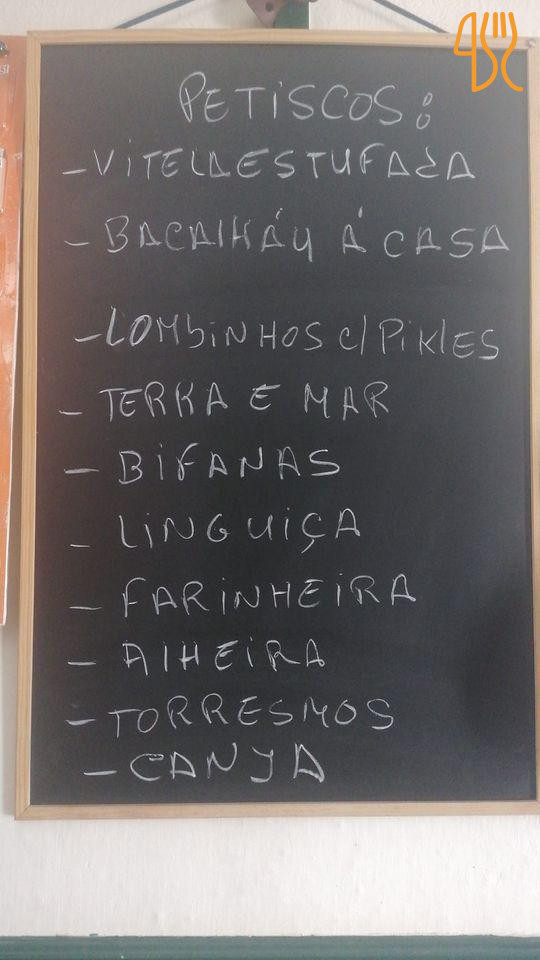 PETISCOS:
- VITELA ESTUFADA
- BACALHÁU Á CASA
- LOMBINHOS C/ PIKLES
- TERRA E MAR
- BIFANAS
- LINGUIÇA
- FARINHEIRA
- ALHEIRA
- TORRESMOS
- CANJA